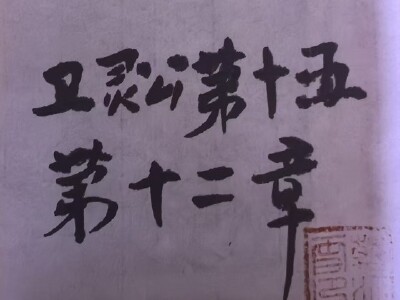 卫灵公第十五
第十二章